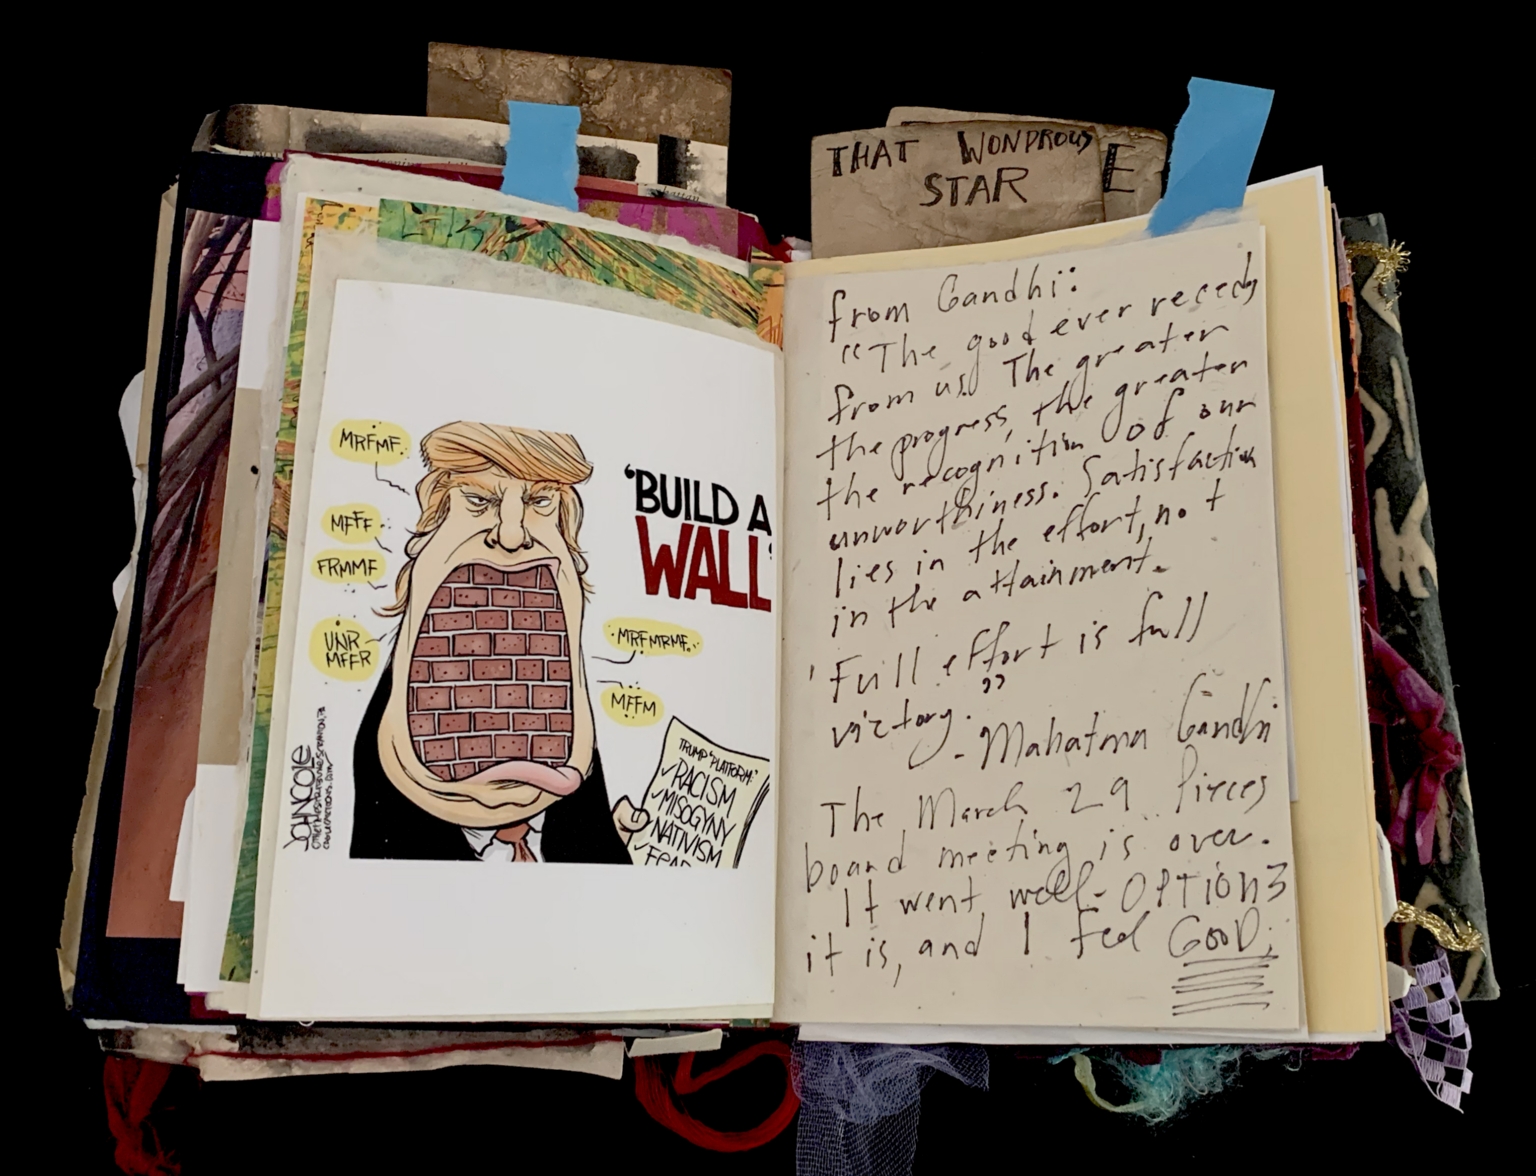 THAT WONDROUS
STAR
E
MRFMF.
MFFF.
FRMMF
UNR
MFFR
'BUILD A
WALL'
MRFMRMF.
MFFM
TRUMP "PLATFORM:"
✓RACISM
✓MISOGYNY
✓NATIVISM
✓FEAR
JOHN COLE
from Gandhi:
"The good ever recedes
from us. The greater
the progress, the greater
the recognition of our
unworthiness. Satisfaction
lies in the effort, not
in the attainment.
'Full effort is full
victory."
- Mahatma Gandhi
The March 29 Pieces
board meeting is over.
It went well - OPTION 3
it is, and I feel GOOD.